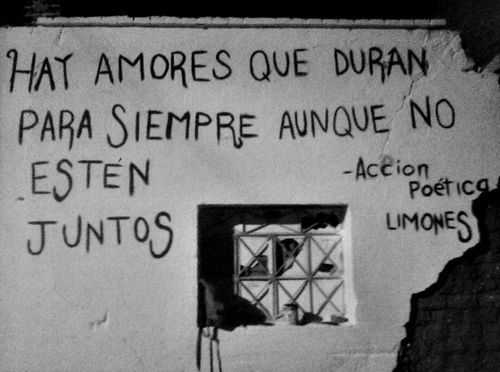 HAY AMORES QUE DURAN
PARA SIEMPRE AUNQUE NO
ESTÉN
JUNTOS
-Accion
Poética
LIMONES